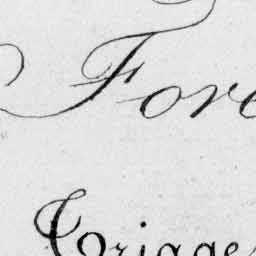 Fore
Trigge